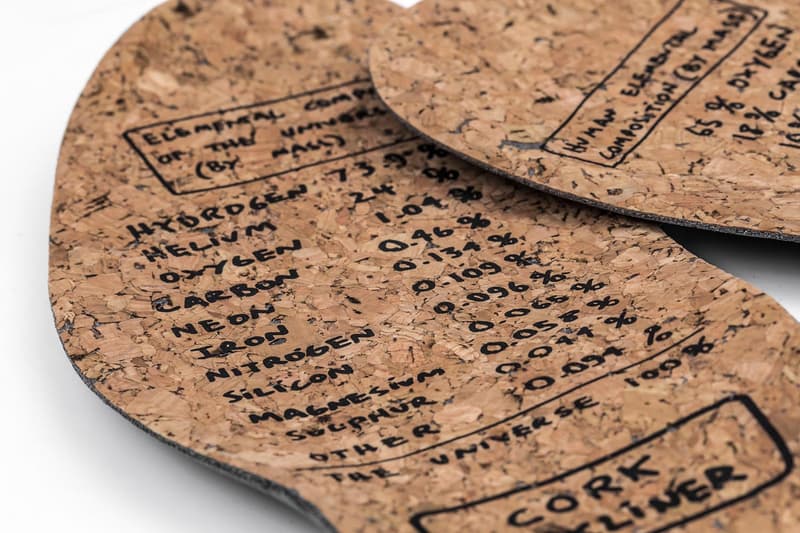 ELEMENTAL
OF THE UNIVERSE
(BY MASS)
HYDROGEN 73.9 %
HELIUM 24 %
OXYGEN 1.04 %
CARBON 0.46 %
NEON 0.134 %
IRON 0.109 %
NITROGEN 0.096 %
SILICON 0.065 %
MAGNESIUM 0.058 %
SULPHUR 0.044 %
OTHER 0.094 %
THE UNIVERSE 100 %
CORK
HUMAN ELEMENTAL
COMPOSITION (BY MASS)
65 % OXYGEN
18 %